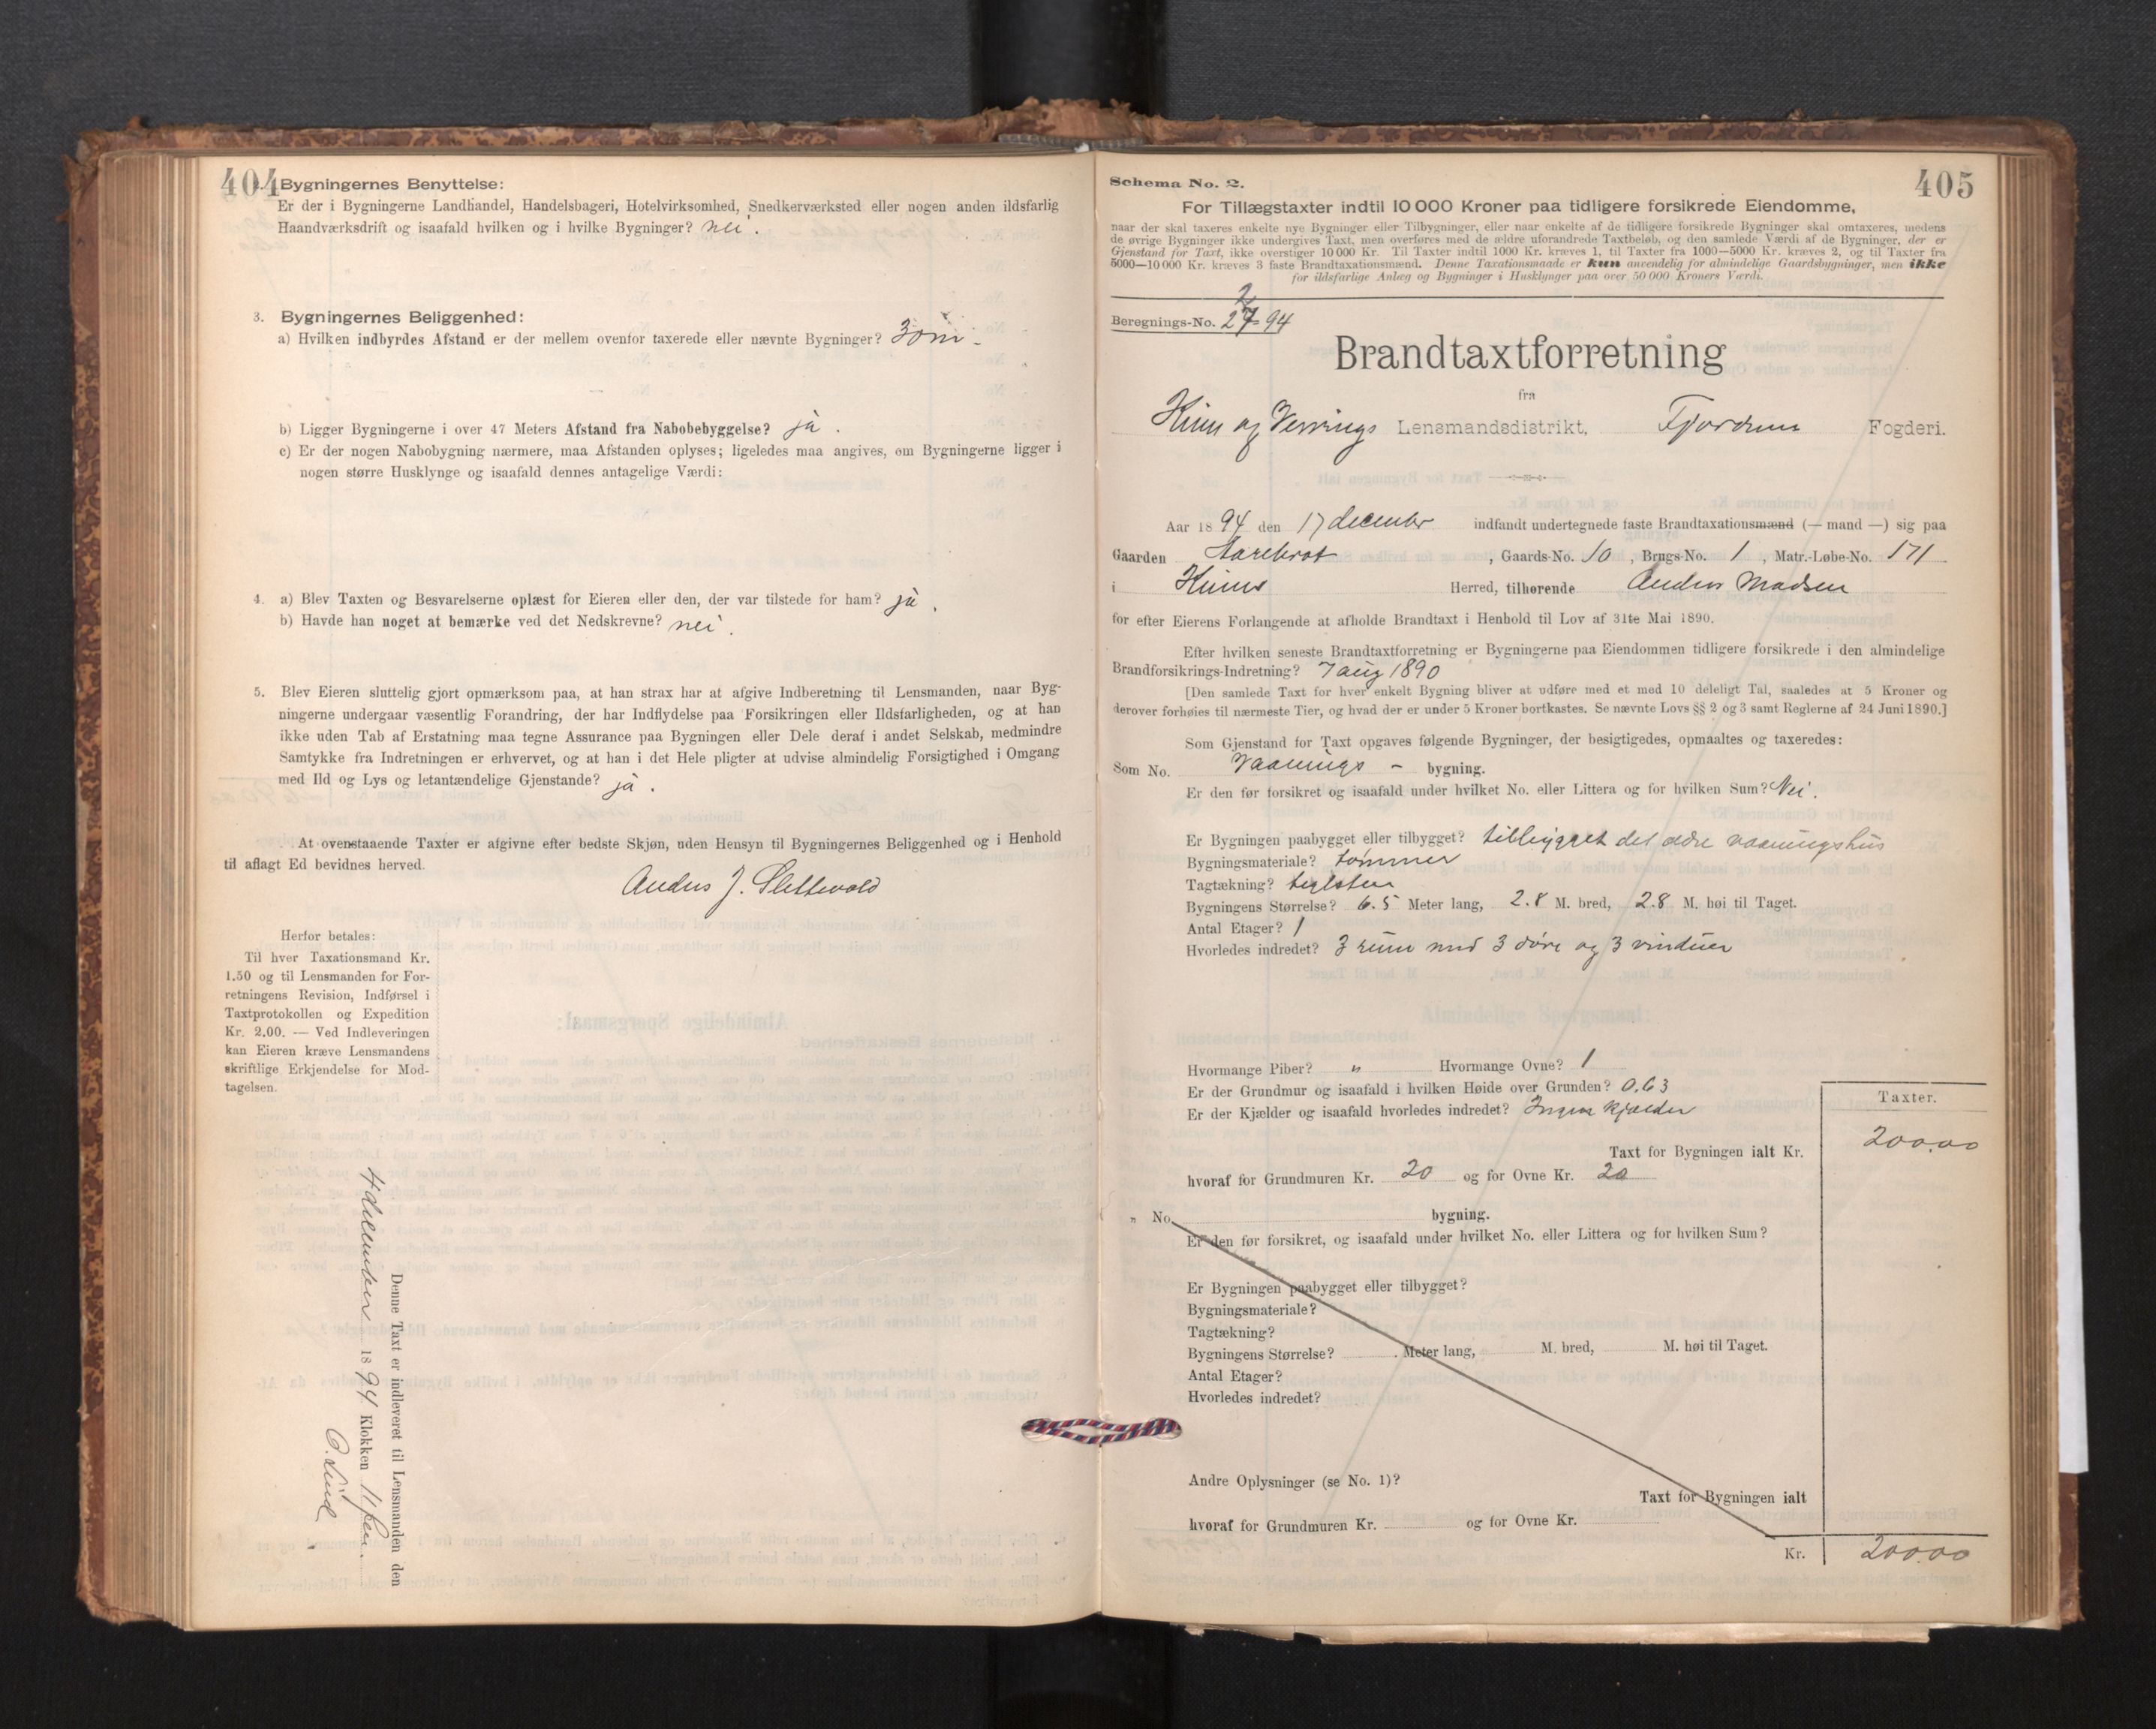 404
Bygningernes Benyttelse:
Er der i Bygningerne Landhandel, Handelsbageri, Hotelvirksomhed, Snedkerværksted eller nogen anden ildsfarlig
Haandværksdrift og isaafald hvilken og i hvilke Bygninger? nei.
3. Bygningernes Beliggenhed:
a) Hvilken indbyrdes Afstand er der mellem ovenfor taxerede eller nævnte Bygninger? 30 m.
b) Ligger Bygningerne i over 47 Meters Afstand fra Nabobebyggelse? ja.
c) Er der nogen Nabobygning nærmere, maa Afstanden oplyses; ligeledes maa angives, om Bygningerne ligger i
nogen større Husklynge og isaafald dennes antagelige Værdi:
4. a) Blev Taxten og Besvarelserne oplæst for Eieren eller den, der var tilstede for ham? ja.
b) Havde han noget at bemærke ved det Nedskrevne? nei.
5. Blev Eieren sluttelig gjort opmærksom paa, at han strax har at afgive Indberetning til Lensmanden, naar Byg-
ningerne undergaar væsentlig Forandring, der har Indflydelse paa Forsikringen eller Ildsfarligheden, og at han
ikke uden Tab af Erstatning maa tegne Assurance paa Bygningen eller Dele deraf i andet Selskab, medmindre
Samtykke fra Indretningen er erhvervet, og at han i det Hele pligter at udvise almindelig Forsigtighed i Omgang
med Ild og Lys og letantændelige Gjenstande? ja.
At ovenstaaende Taxter er afgivne efter bedste Skjøn, uden Hensyn til Bygningernes Beliggenhed og i Henhold
til aflagt Ed bevidnes herved.
Anders J. Slettevold
Herfor betales:
Til hver Taxationsmand Kr.
1.50 og til Lensmanden for For-
retningens Revision, Indførsel i
Taxtprotokollen og Expedition
Kr. 2.00. — Ved Indleveringen
kan Eieren kræve Lensmandens
skriftlige Erkjendelse for Mod-
tagelsen.
Denne Taxt er indleveret til Lensmanden den
1894 Klokken 11
405
Schema No. 2.
For Tillægstaxter indtil 10 000 Kroner paa tidligere forsikrede Eiendomme,
naar der skal taxeres enkelte nye Bygninger eller Tilbygninger, eller naar enkelte af de tidligere forsikrede Bygninger skal omtaxeres, medens
de øvrige Bygninger ikke undergives Taxt, men overføres med de ældre uforandrede Taxtbeløb, og den samlede Værdi af de Bygninger, der er
Gjenstand for Taxt, ikke overstiger 10 000 Kr. Til Taxter indtil 1000 Kr. kræves 1, til Taxter fra 1000—5000 Kr. kræves 2, og til Taxter fra
5000—10 000 Kr. kræves 3 faste Brandtaxationsmænd. Denne Taxationsmaade er kun anvendelig for almindelige Gaardsbygninger, men ikke
for ildsfarlige Anlæg og Bygninger i Husklynger paa over 50 000 Kroners Værdi.
Beregnings-No. 94
Brandtaxtforretning
fra
Kinn og Lensmandsdistrikt, Fogderi.
Aar 1894 den 17 december indfandt undertegnede faste Brandtaxationsmænd (— mand —) sig paa
Gaarden Aarebrot, Gaards-No. 10, Brugs-No. 1, Matr.-Løbe-No. 171
i Kinns Herred, tilhørende Anders Madsen
for efter Eierens Forlangende at afholde Brandtaxt i Henhold til Lov af 31te Mai 1890.
Efter hvilken seneste Brandtaxtforretning er Bygningerne paa Eiendommen tidligere forsikrede i den almindelige
Brandforsikrings-Indretning? 7 aug 1890
[Den samlede Taxt for hver enkelt Bygning bliver at udføre med et med 10 deleligt Tal, saaledes at 5 Kroner og
derover forhøies til nærmeste Tier, og hvad der er under 5 Kroner bortkastes. Se nævnte Lovs §§ 2 og 3 samt Reglerne af 24 Juni 1890.]
Som Gjenstand for Taxt opgaves følgende Bygninger, der besigtigedes, opmaaltes og taxeredes:
Som No. Vaanings - bygning.
Er den før forsikret og isaafald under hvilket No. eller Littera og for hvilken Sum? Nei.
Er Bygningen paabygget eller tilbygget? tilbygget det ældre vaaningshus
Bygningsmateriale? tømmer
Tagtækning? teglsten
Bygningens Størrelse? 6.5 Meter lang, 2.8 M. bred, 2.8 M. høi til Taget.
Antal Etager? 1
Hvorledes indredet? 3 rum med 3 døre og 3 vinduer
Hvormange Piber? " Hvormange Ovne? 1
Er der Grundmur og isaafald i hvilken Høide over Grunden? 0.63
Er der Kjælder og isaafald hvorledes indredet? Ingen kjælder
Taxter.
Taxt for Bygningen ialt Kr. 200.00
hvoraf for Grundmuren Kr. 20 og for Ovne Kr. 20
" No. bygning.
Er den før forsikret, og isaafald under hvilket No. eller Littera og for hvilken Sum?
Er Bygningen paabygget eller tilbygget?
Bygningsmateriale?
Tagtækning?
Bygningens Størrelse? Meter lang, M. bred, M. høi til Taget.
Antal Etager?
Hvorledes indredet?
Andre Oplysninger (se No. 1)?
Taxt for Bygningen ialt
hvoraf for Grundmuren Kr. og for Ovne Kr.
Kr. 200.00